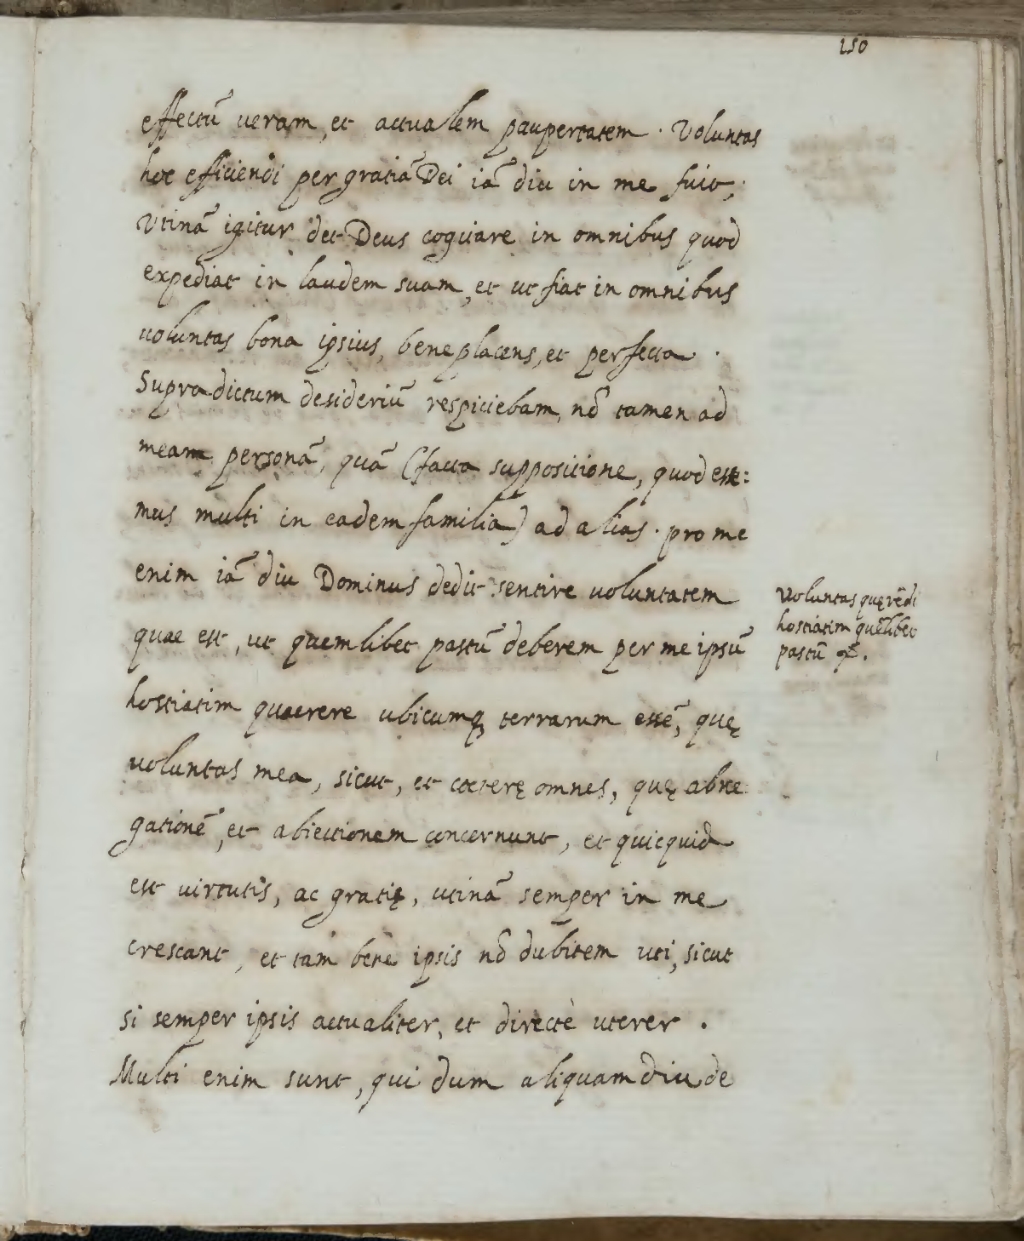 150
effectū veram, et actualem paupertatem. Voluntas
hoc efficiendi per gratiā Dei iā diu in me fuit;
Vtinā igitur det Deus cogitare in omnibus quod
expediat in laudem suam, et ut fiat in omnibus
voluntas bona ipsius, beneplacens, et perfecta.
Supradictum desideriū respiciebam, nō tamen ad
meam personā, quā (facta suppositione, quod esse:
mus multi in eadem familia) ad alias. pro me
enim iā diu Dominus dedit sentire voluntatem
quae est, ut quemlibet pastū deberem per me ipsū
hostiatim quaerere ubicumq₃ terrarum essē, quę
voluntas mea, sicut, et cæterę omnes, quę abne
gationē, et abiectionem concernunt, et quicquid
est virtutis, ac gratię, utinā semper in me
crescant, et tam bene ipsis nō dubitem uti, sicut
si semper ipsis actualiter, et directè uterer.
Multi enim sunt, qui dum aliquamdiu de
Voluntas quęrēdi
hostiatim quēlibet
pastū